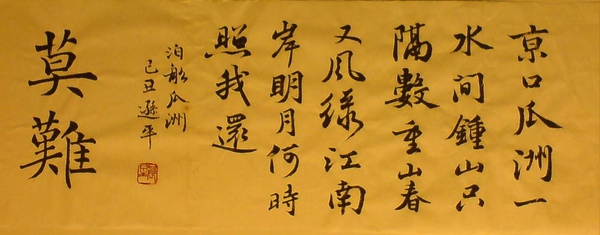 京口瓜洲一
水间鍾山只
隔數重山春
又风绿江南
岸明月何時
照我還
泊船瓜洲
己丑遜平
莫難